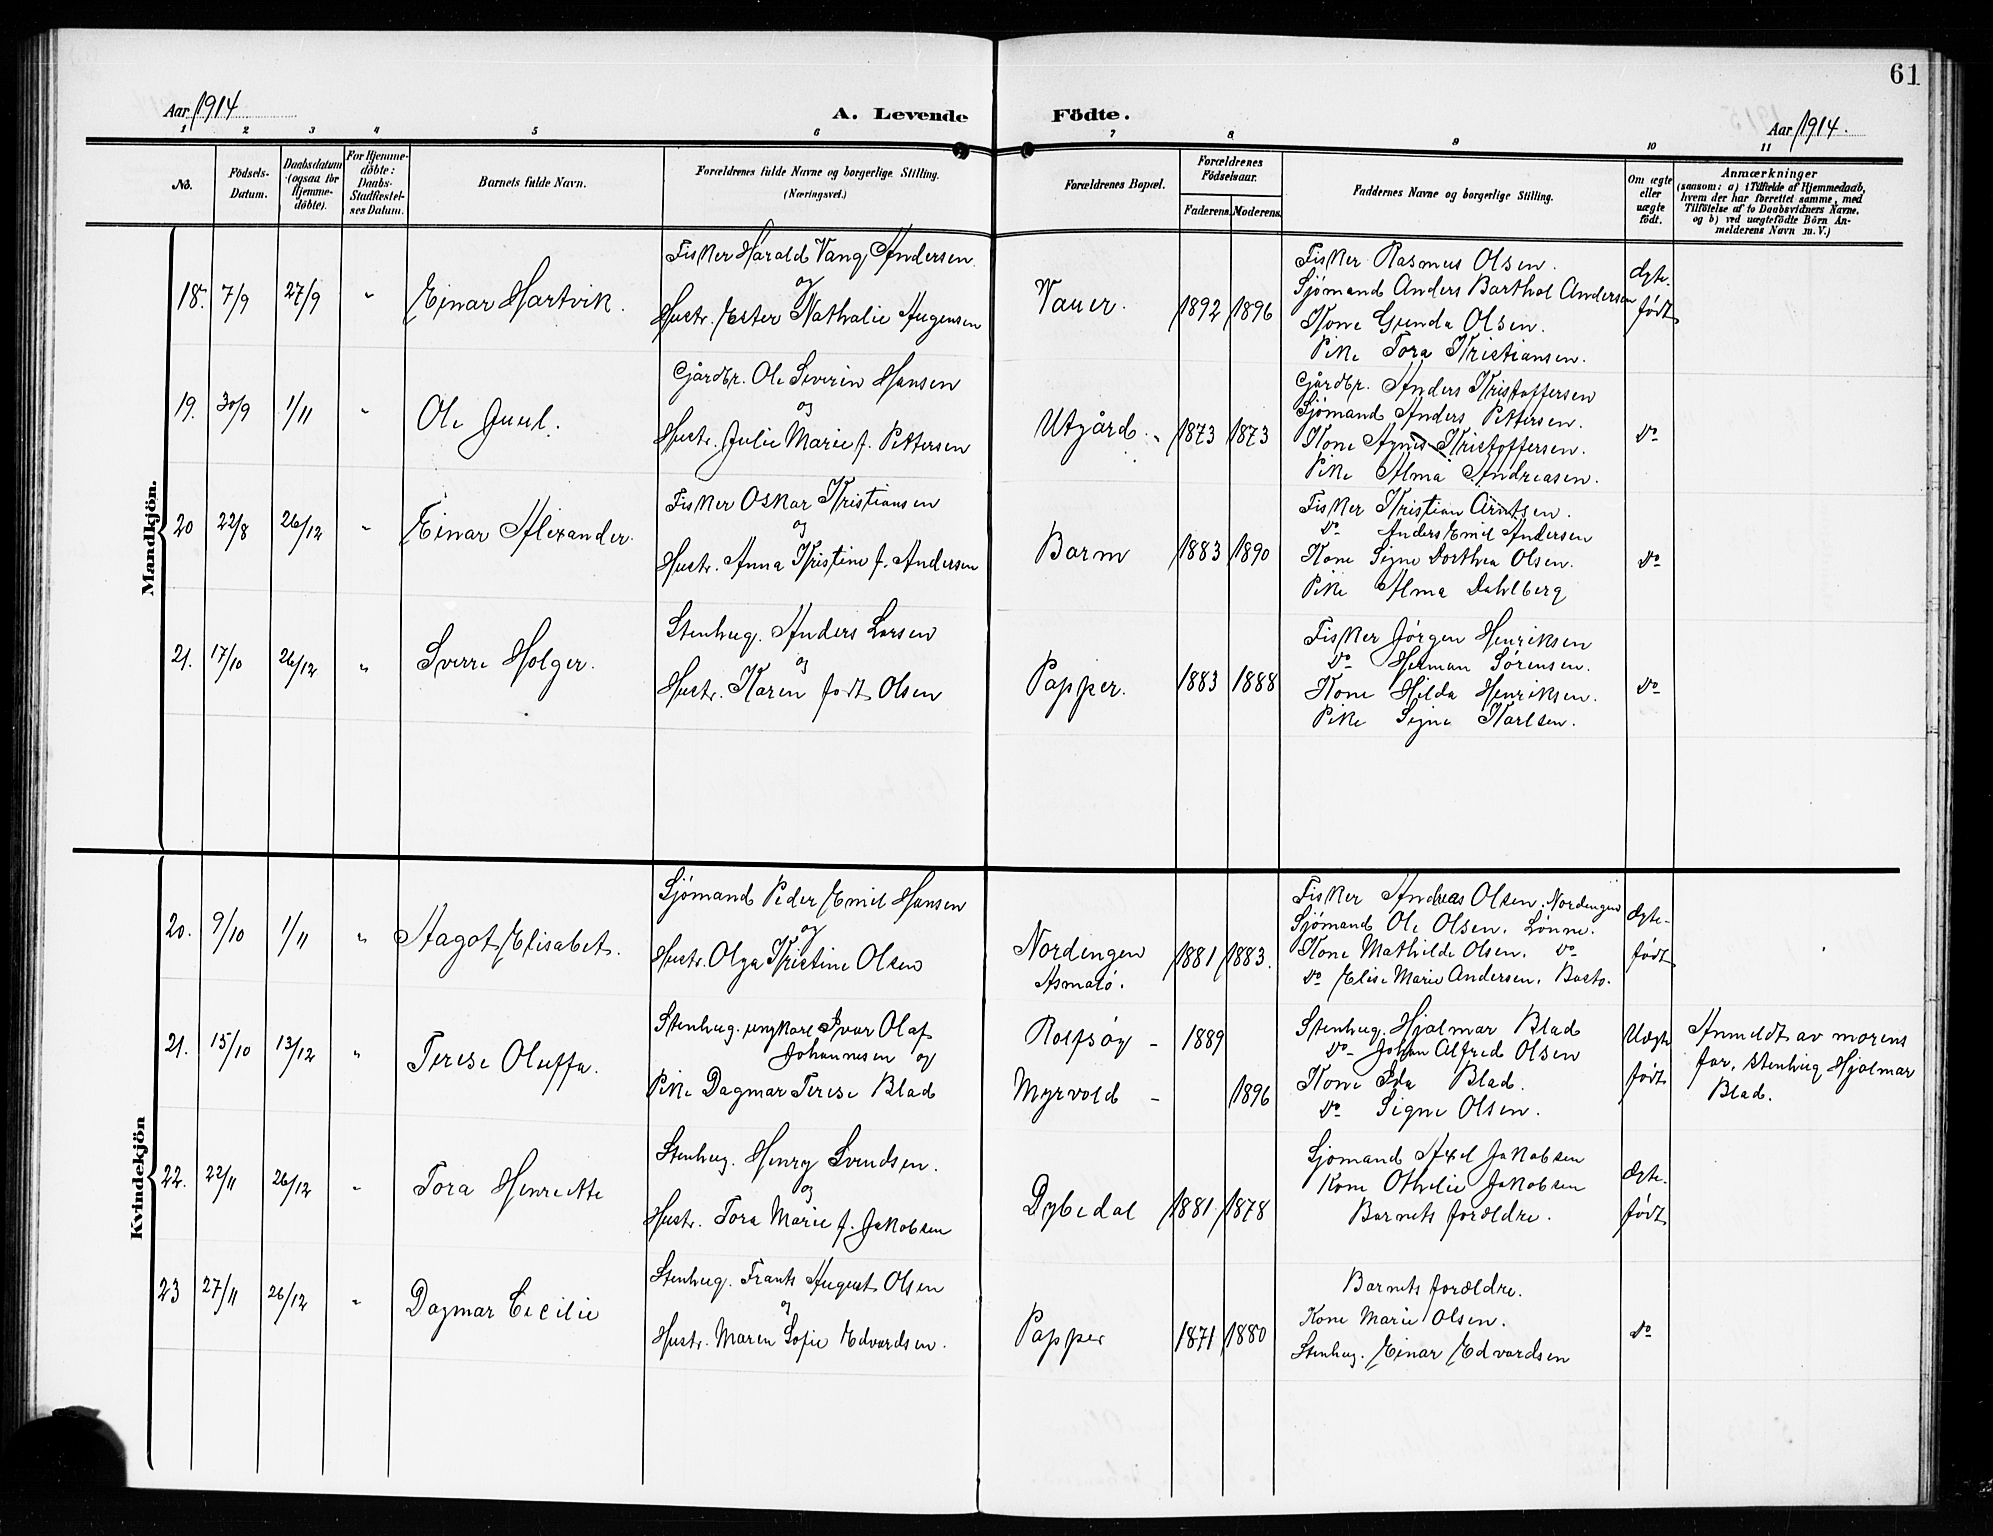 61
Aar 1914
A. Levende Födte.
Aar 1914.
1 2 3 4 5 6 7 8 9 10 11
No.
Födsels-
Datum.
Daabsdatum
(ogsaa for
Hjemme-
döbte).
For Hjemme-
döbte:
Daabs-
Stadfæstel-
ses Datum.
Barnets fulde Navn.
Forældrenes fulde Navne og borgerlige Stilling.
(Næringsvei.)
Forældrenes Bopæl.
Forældrenes
Födselsaar.
Faderens. Moderens.
Faddernes Navne og borgerlige Stilling.
Om ægte
eller
uægte
födt.
Anmærkninger
(saasom: a) i Tilfælde af Hjemmedaab,
hvem der har forrettet samme, med
Tilföielse af to Daabsvidners Navne,
og b) ved uægtefödte Börn An-
melderens Navn m. V.)
Mandkjön.
18. 7/9 27/9 " Einar Hartvik.
Fisker Harald Vang Andersen
og
Hustr. Ester Nathalie Augensen
Vauer. 1892 1896
Fisker Rasmus Olsen.
Sjömand Anders Barthol Andersen
Kone Gunda Olsen.
Pike Tora Kristiansen.
Ægte-
født
19. 30/9 1/11 " Ole Juul.
Gårdbr. Ole Severin Hansen
og
Hustr. Julie Marie f. Pettersen
Utgård. 1873 1873
Gårdbr. Anders Kristoffersen
Sjömand Anders Pettersen.
Kone Agnes Kristoffersen.
Pike Alma Andreasen.
do
20 22/8 26/12 " Einar Alexander.
Fisker Oskar Kristiansen
og
Hustr. Anna Kristine f. Andersen
Barm 1883 1890
Fisker Kristian Arntsen.
do Anders Emil Andersen
Kone Signe Dorthea Olsen.
Pike Alma Dahlberg
do
21. 17/10 26/12 " Sverre Holger.
Stenhug. Anders Larsen
og
Hustr. Karen født Olsen
Papper. 1883 1888
Fisker Jørgen Henriksen
do Herman Sørensen.
Kone Hilda Henriksen.
Pike Signe Karlsen.
do
Kvindekjön
20. 9/10 1/11 " Aagot Elisabet.
Sjömand Peder Emil Hansen
og
Hustr. Olga Kristine Olsen
Nordengen
Asmalö.
1881 1883.
Fisker Andreas Olsen. Nordengen
Sjömand Ole Olsen. Lønne.
Kone Mathilde Olsen. do
do Elise Marie Andersen. Basto.
Ægte-
født
21. 15/10 13/12 " Terese Oluffa.
Stenhug. ungkarl Ivar Olaf
Johannesen og
Pike Dagmar Terese Blad
Rolfsøy - 1889
Myrvold - 1896
Stenhug. Hjalmar Blad
do- Johan Alfred Olsen
Kone Ida Blad.
do Signe Olsen.
Uægte
født
Anmeldt av morens
far, stenhug Hjalmar
Blad.
22. 22/11 26/12 " Tora Henriette
Stenhug. Henry Svendsen.
og
Hustr. Tora Marie f. Jakobsen
Dybedal 1881. 1878
Sjömand Axel Jakobsen
Kone Othilie Jakobsen
Barnets forældre.
Ægte-
født
23 27/11 26/12 " Dagmar Cecilie
Stenhug. Frants August Olsen
og
Hustr. Maren Sofie Edvardsen.
Papper 1871 1880
Barnets forældre.
Kone Marie Olsen.
Stenhug. Einar Edvardsen
do